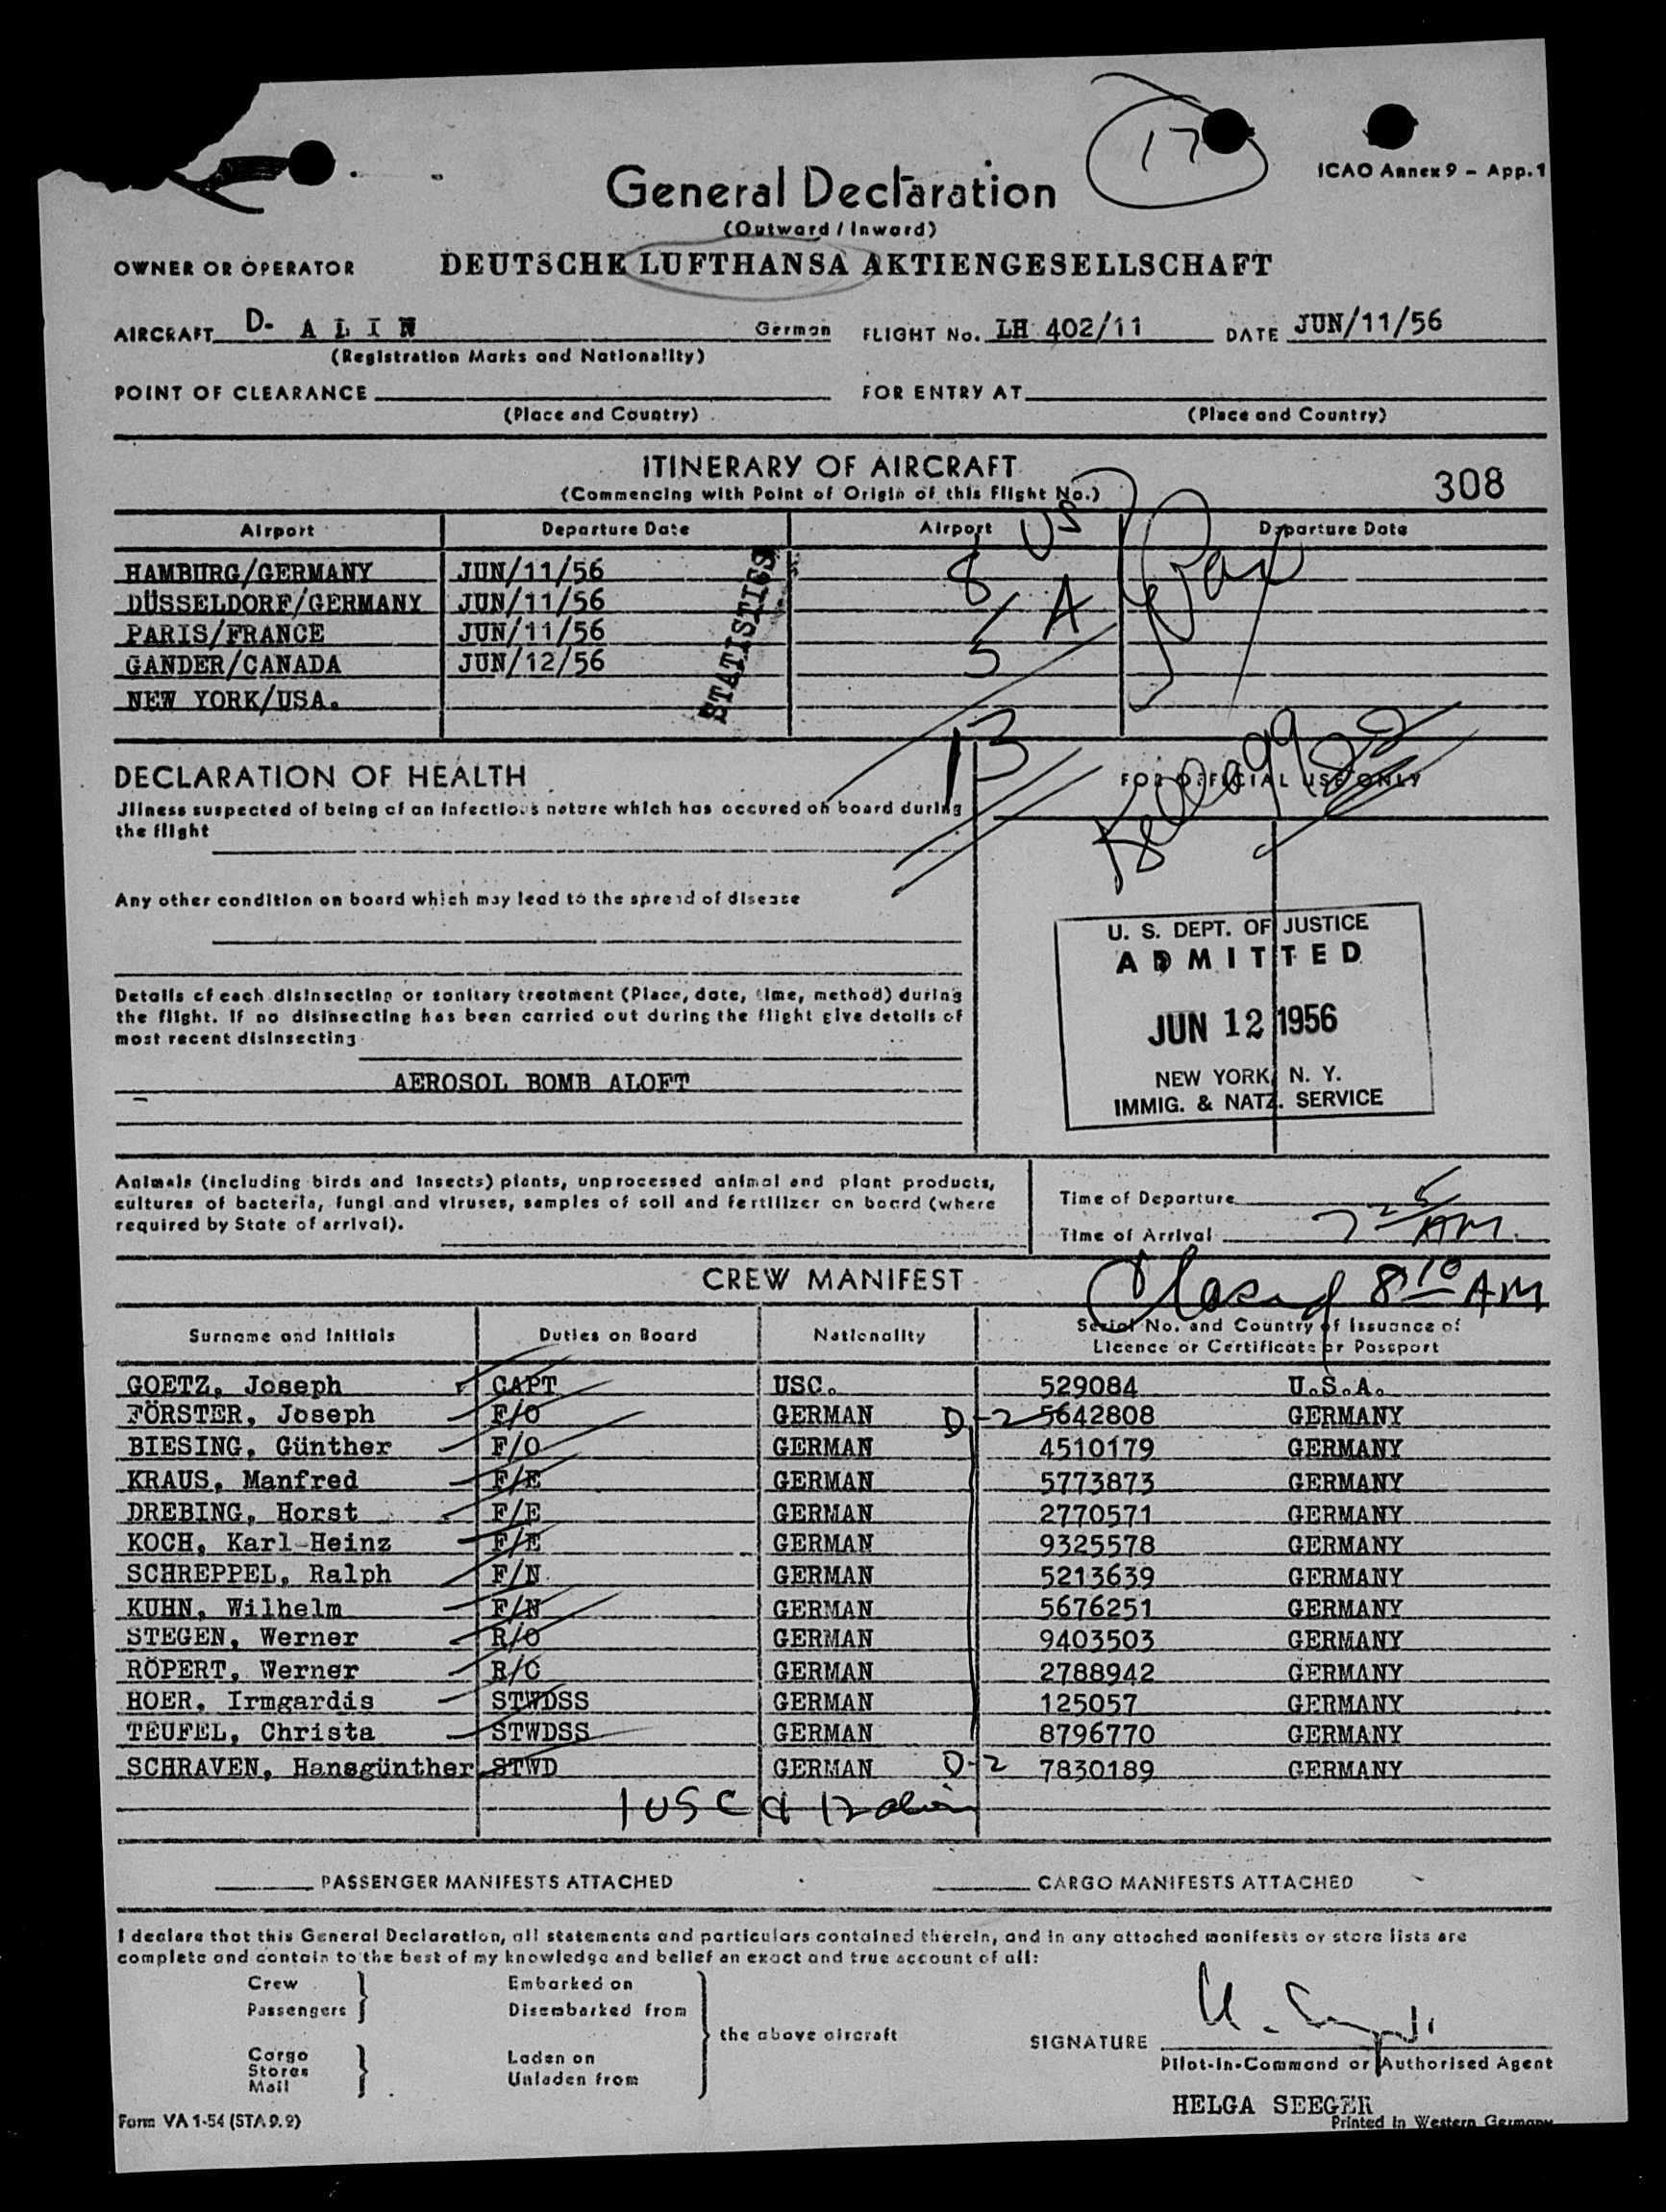 17
ICAO Annex 9 - App. 1
General Declaration
(Outward / Inward)
OWNER OR OPERATOR DEUTSCHE LUFTHANSA AKTIENGESELLSCHAFT
AIRCRAFT D- A L I N German FLIGHT No. LH 402/11 DATE JUN/11/56
(Registration Marks and Nationality)
POINT OF CLEARANCE FOR ENTRY AT
(Place and Country) (Place and Country)
ITINERARY OF AIRCRAFT
(Commencing with Point of Origin of this Flight No.)
308
Airport Departure Date Airport Departure Date
HAMBURG/GERMANY JUN/11/56
DÜSSELDORF/GERMANY JUN/11/56
PARIS/FRANCE JUN/11/56
GANDER/CANADA JUN/12/56
NEW YORK/USA.
STATISTICS
US
8
A
5
13
DECLARATION OF HEALTH
FOR OFFICIAL USE ONLY
Jllness suspected of being of an infectious nature which has occured on board during
the flight
Any other condition on board which may lead to the spread of disease
U. S. DEPT. OF JUSTICE
ADMITTED
JUN 12 1956
NEW YORK, N. Y.
IMMIG. & NATZ. SERVICE
Details of each disinsecting or sanitary treatment (Place, date, time, method) during
the flight. If no disinsecting has been carried out during the flight give details of
most recent disinsecting
AEROSOL BOMB ALOFT
Animals (including birds and insects) plants, unprocessed animal and plant products,
cultures of bacteria, fungi and viruses, samples of soil and fertilizer on board (where
required by State of arrival).
Time of Departure
Time of Arrival 7 25 AM.
CREW MANIFEST
Closed 8 10 AM
Surname and Initials Duties on Board Nationality Serial No. and Country of Issuance of
Licence or Certificate or Passport
GOETZ, Joseph CAPT USC. 529084 U.S.A.
FÖRSTER, Joseph F/O GERMAN D-2 5642808 GERMANY
BIESING, Günther F/O GERMAN 4510179 GERMANY
KRAUS, Manfred F/E GERMAN 5773873 GERMANY
DREBING, Horst F/E GERMAN 2770571 GERMANY
KOCH, Karl-Heinz F/E GERMAN 9325578 GERMANY
SCHREPPEL, Ralph F/N GERMAN 5213639 GERMANY
KUHN, Wilhelm F/N GERMAN 5676251 GERMANY
STEGEN, Werner R/O GERMAN 9403503 GERMANY
RÖPERT, Werner R/O GERMAN 2788942 GERMANY
HOER, Irmgardis STWDSS GERMAN 125057 GERMANY
TEUFEL, Christa STWDSS GERMAN 8796770 GERMANY
SCHRAVEN, Hansgünther STWD GERMAN D-2 7830189 GERMANY
1 USC & 12 alien
PASSENGER MANIFESTS ATTACHED CARGO MANIFESTS ATTACHED
I declare that this General Declaration, all statements and particulars contained therein, and in any attached manifests or store lists are
complete and contain to the best of my knowledge and belief an exact and true account of all:
Crew Embarked on
Passengers Disembarked from
the above aircraft
Cargo Laden on
Stores Unladen from
Mail
SIGNATURE
Pilot-In-Command or Authorised Agent
HELGA SEEGER
Form VA 1-54 (STA 9.2)
Printed in Western Germany